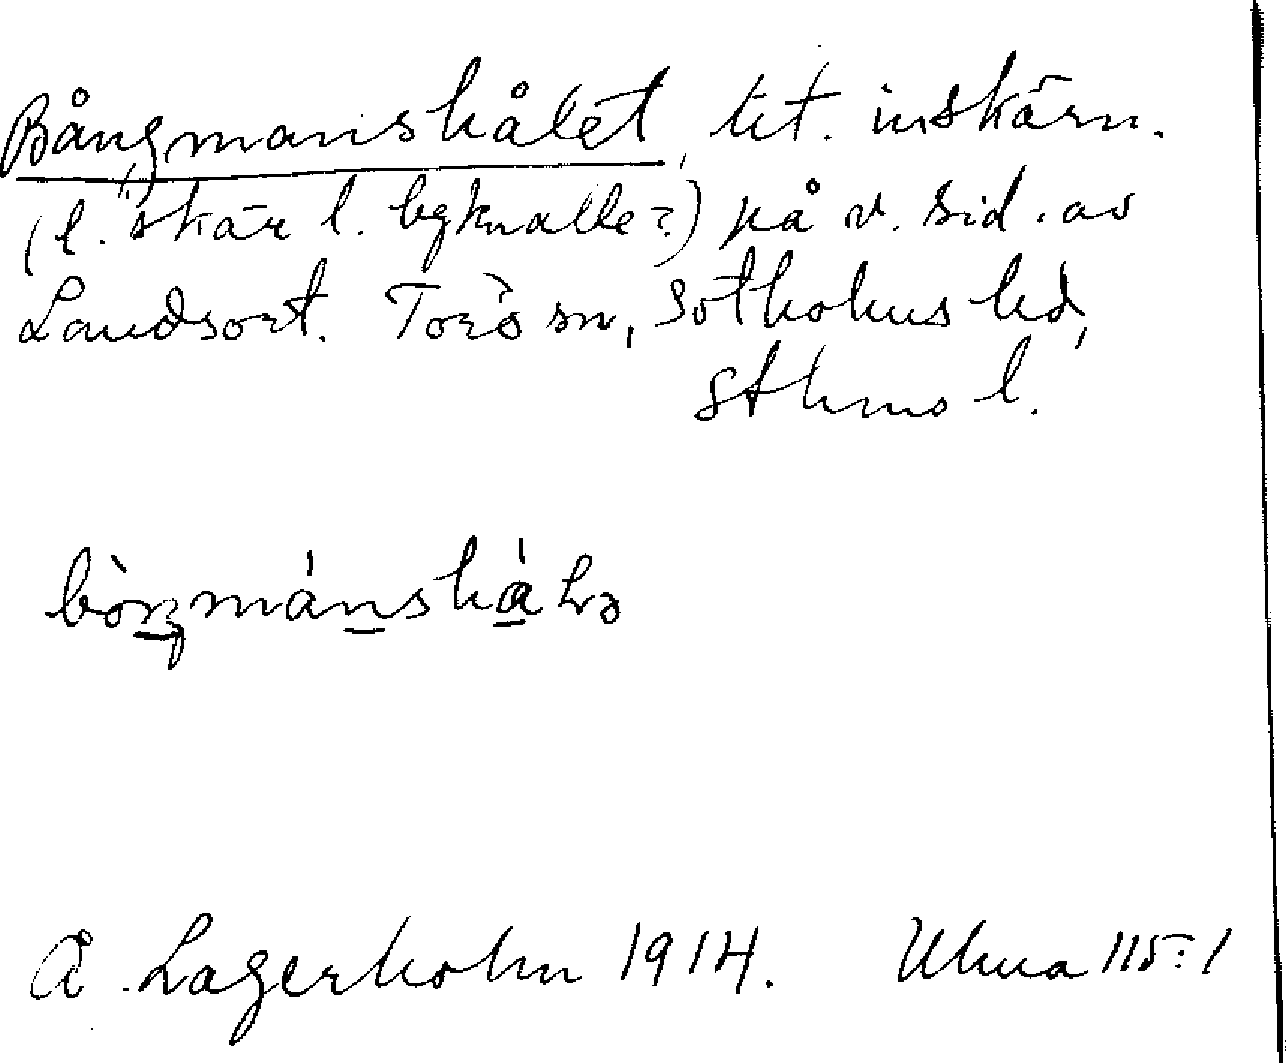 Bångmanshålet, lit. inskärn.
(l. skär l. bgknalle?) på v. sid. av
Landsort. Torö sn, Sotholms hd,
Sthms l.
Å. Lagerholm 1914. Ulma 115:1